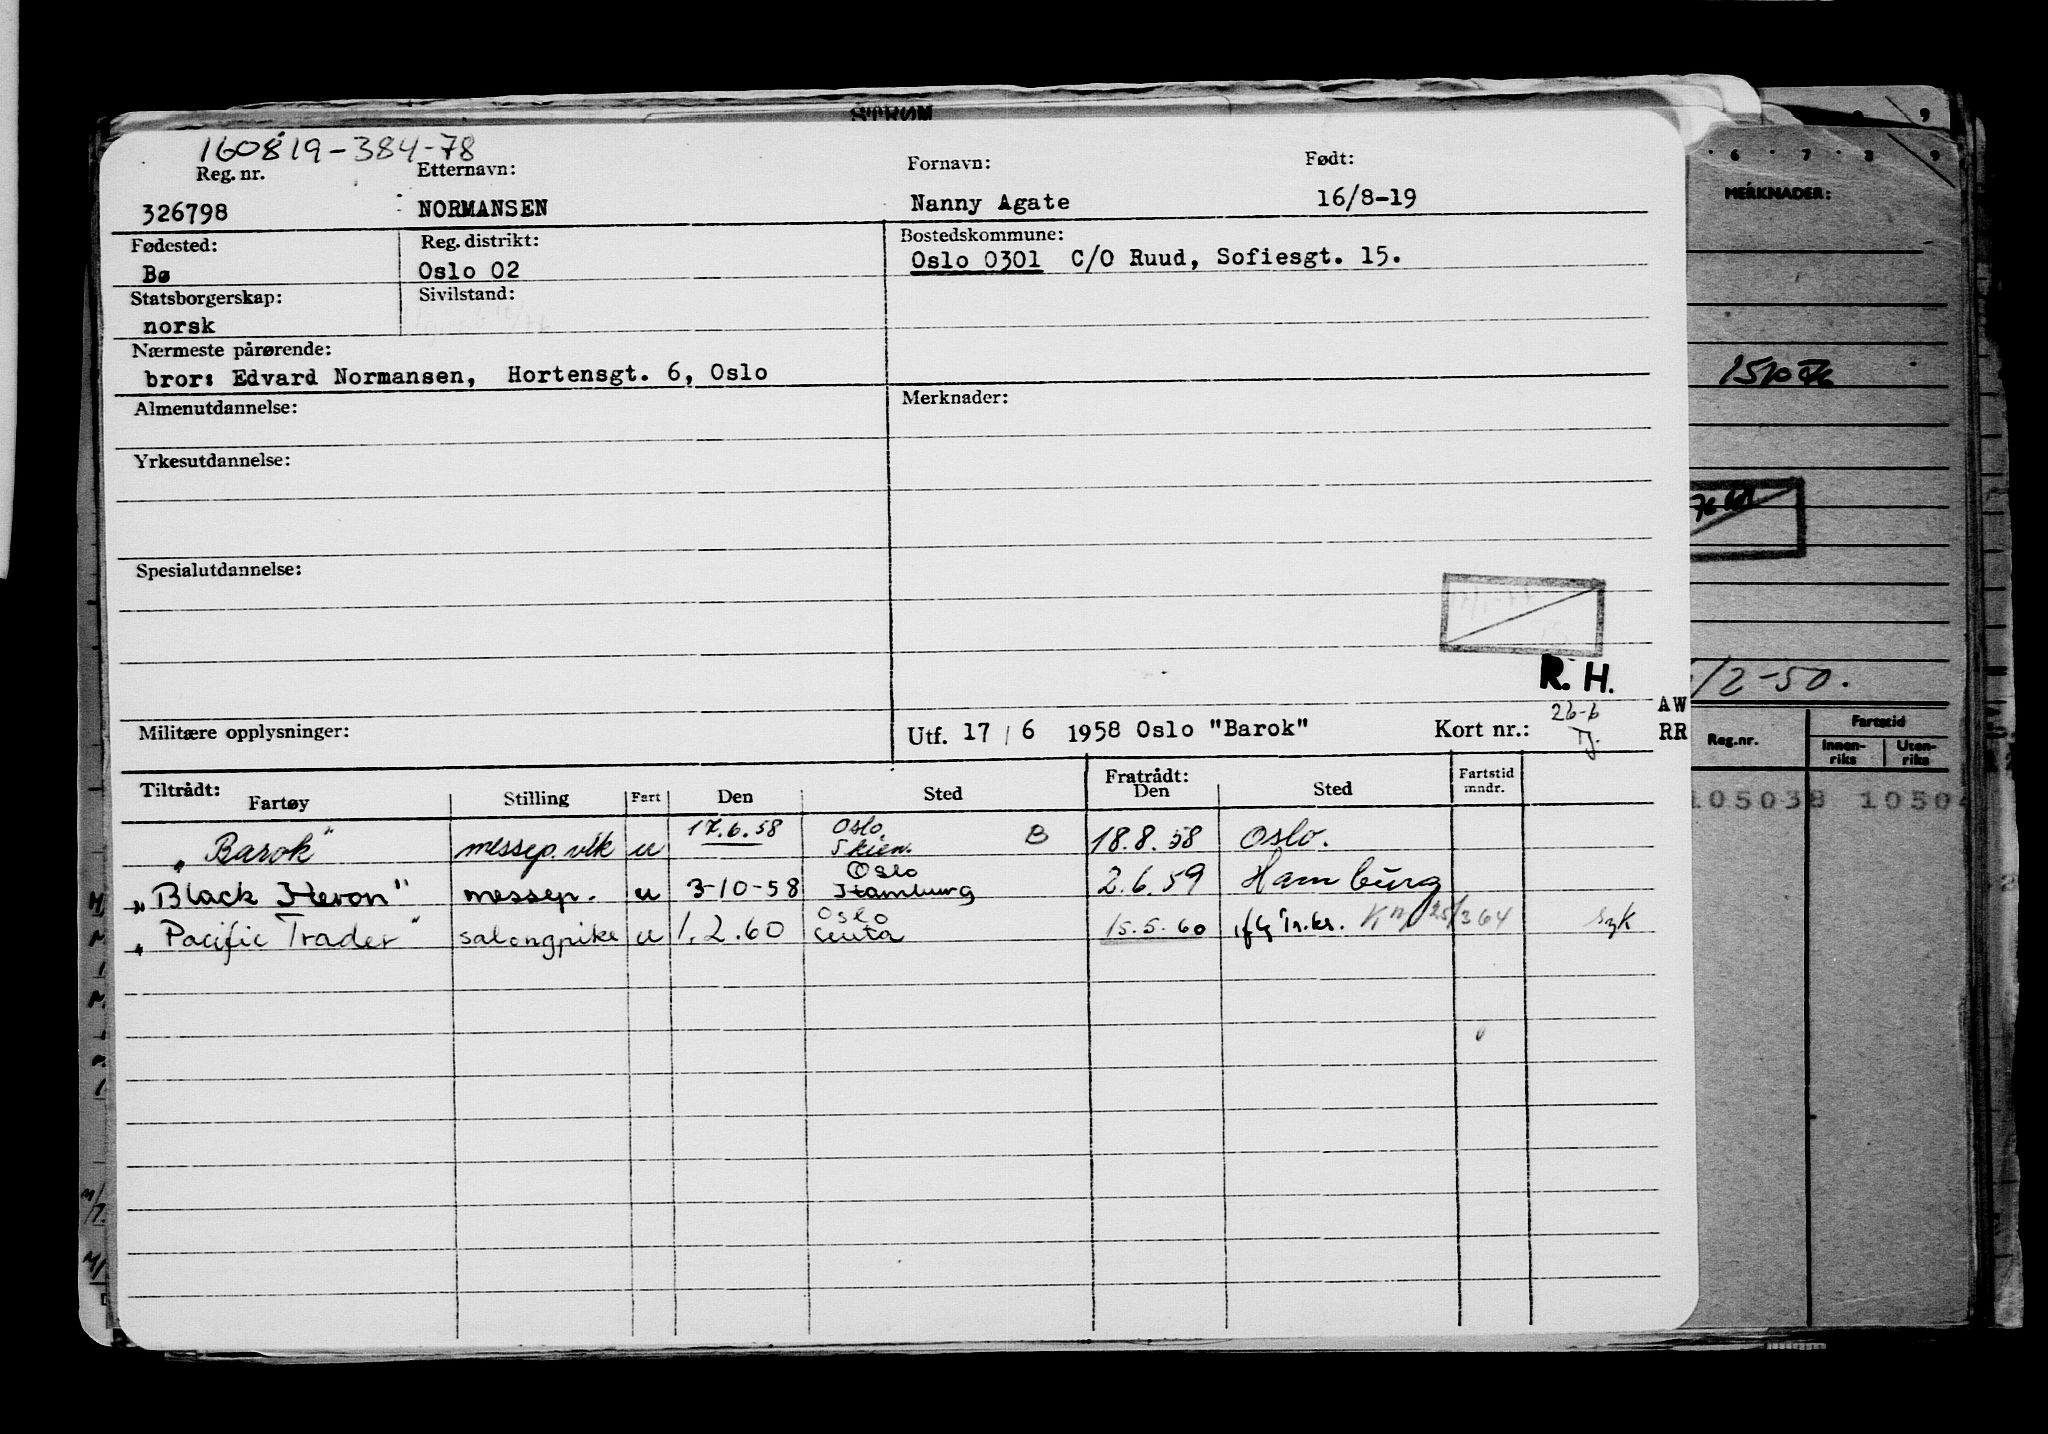 STRØM
160819-384-78
Reg. nr. Etternavn: Fornavn: Født:
326798 NORMANSEN Nanny Agate 16/8-19
Fødested: Reg. distrikt: Bostedskommune:
Bø Oslo 02 Oslo 0301 C/O Ruud, Sofiesgt. 15.
Statsborgerskap: Sivilstand:
norsk
Nærmeste pårørende:
bror: Edvard Normansen, Hortensgt. 6, Oslo
Almenutdannelse: Merknader:
Yrkesutdannelse:
Spesialutdannelse:
R. H.
Militære opplysninger: Utf. 17 / 6 1958 Oslo "Barok" Kort nr.: 26-6
AW
RR
Tiltrådt: Fratrådt:
Fartøy Stilling Fart Den Sted Den Sted Fartstid mndr.
"Barok" messep. vik u 17.6.58 Oslo. Skien. B 18.8.58 Oslo.
"Black Heron" messep. u 3-10-58 Oslo Hamburg 2.6.59 Hamburg
"Pacific Trader" salongpike u 1.2.60 Oslo Ceuta 15.5.60 ifg Tr.kr. syk
6 7 8 9
MERKNADER:
/2-50.
Reg.nr. Fartstid
Innen-riks Uten-riks
105038 1050